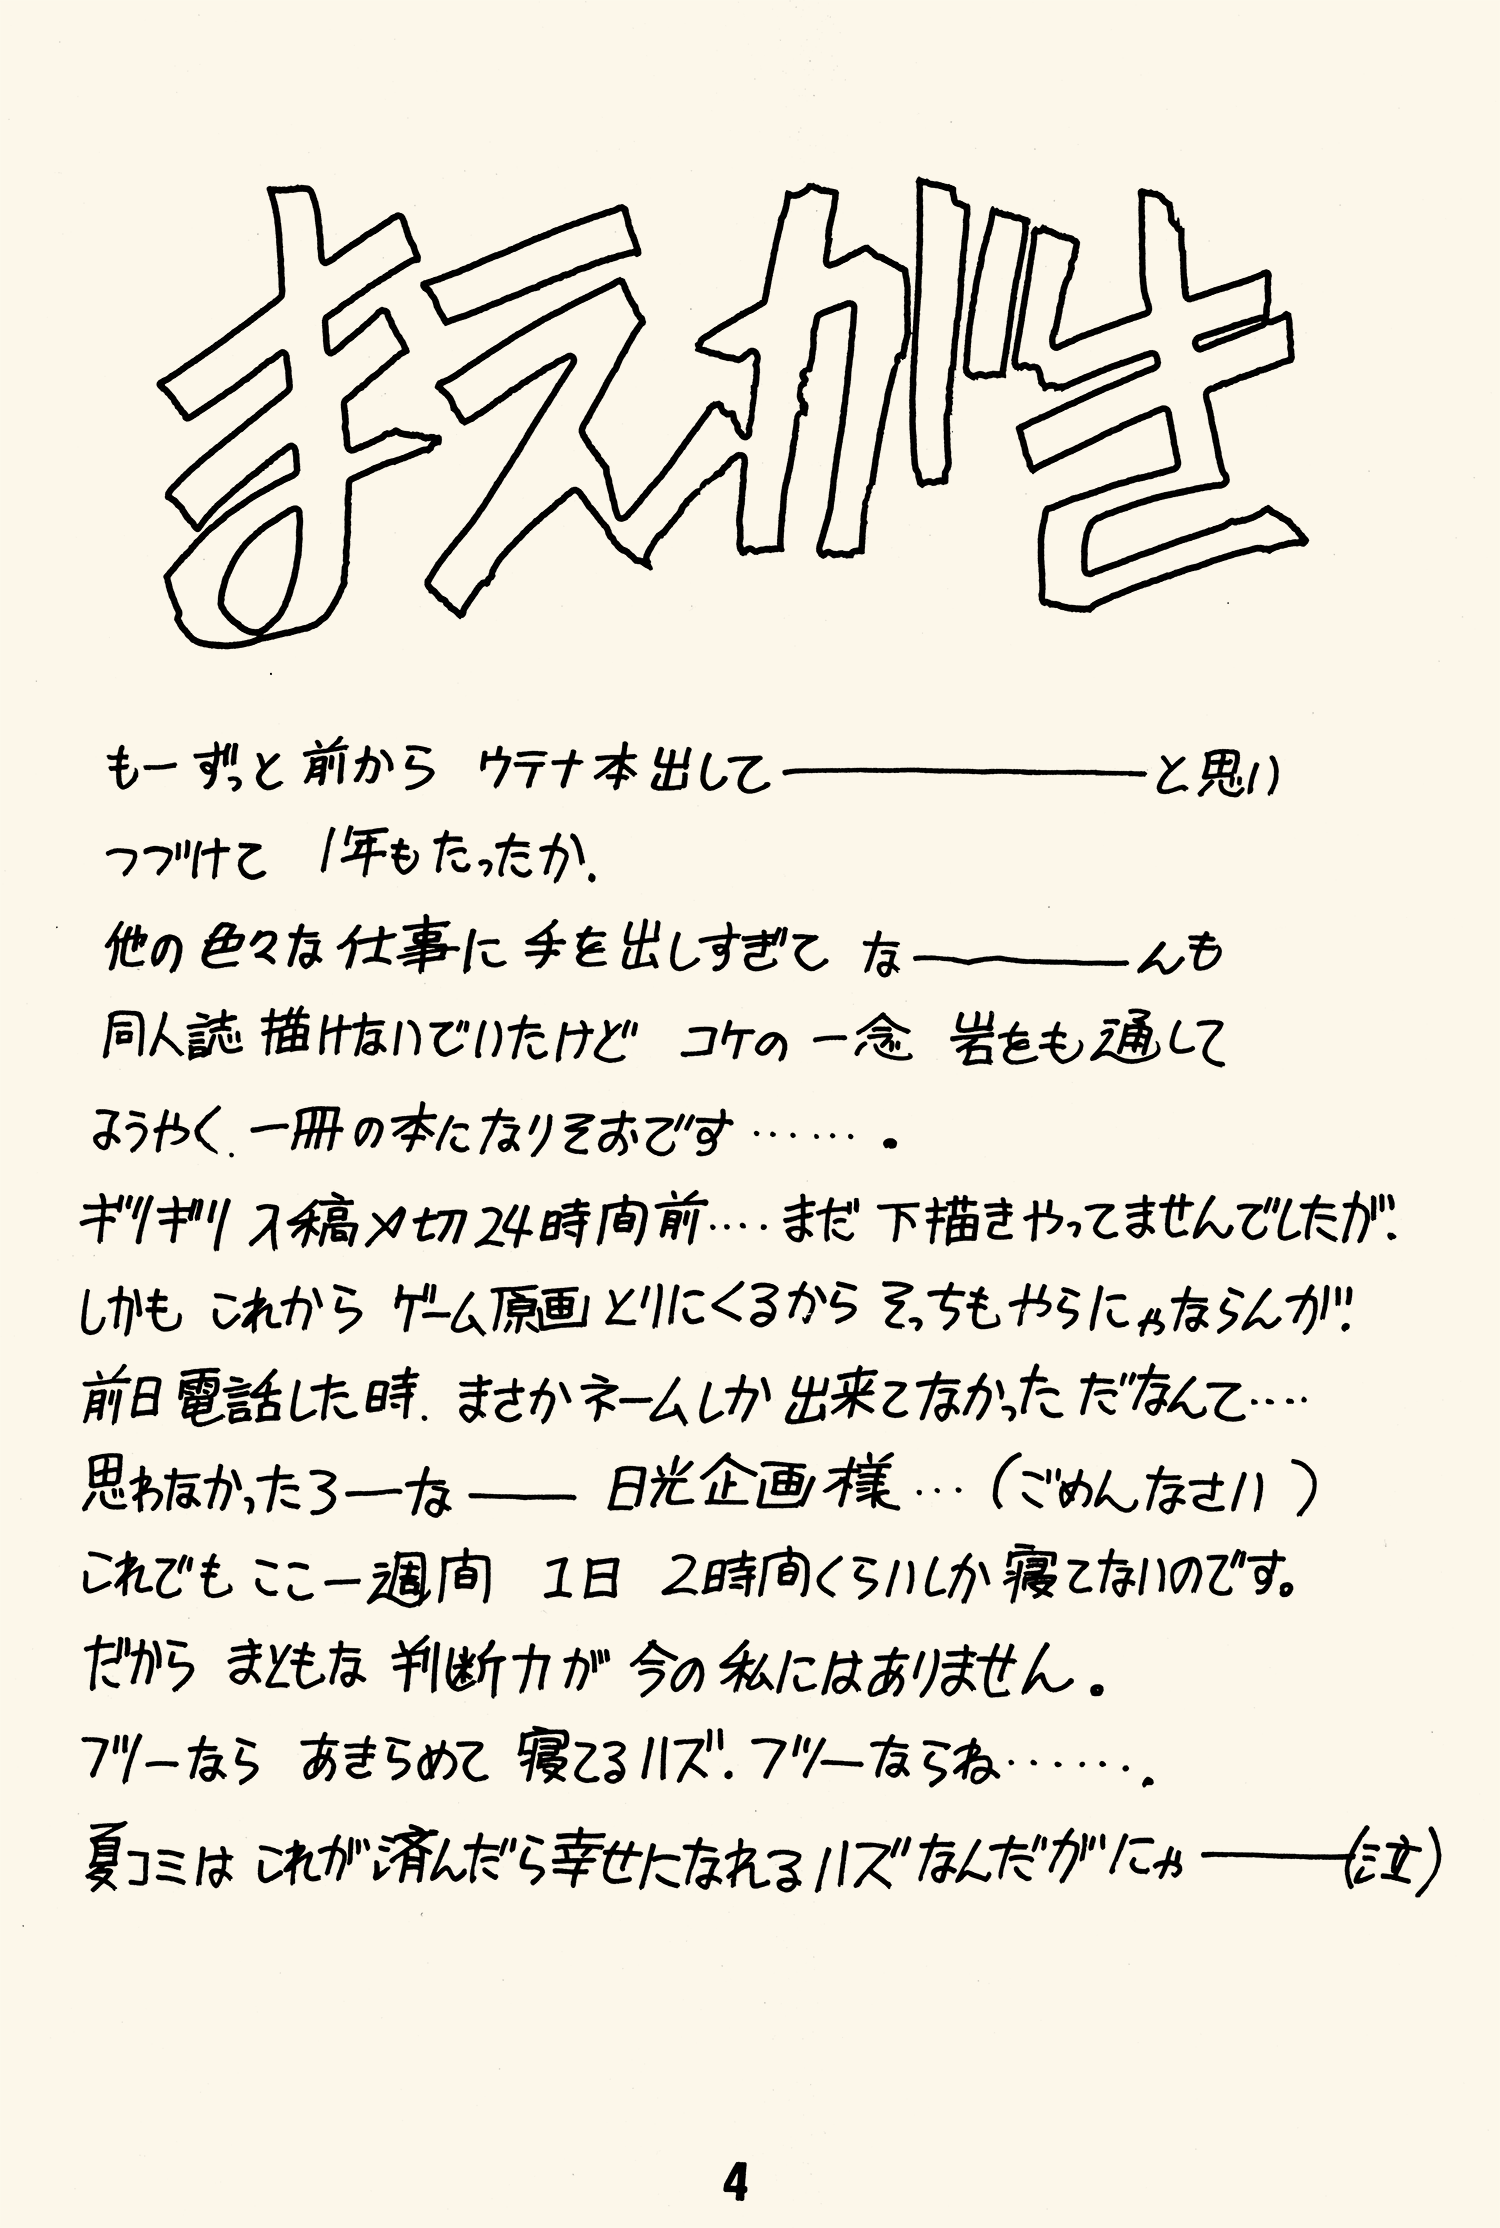 まえがき
もーずっと前から ウテナ本出して────と思い
つづけて 1年もたったか.
他の色々な仕事に手を出しすぎて な───んも
同人誌描けないでいたけど コケの一念 岩をも通して
ようやく. 一冊の本になりそおです……。
ギリギリ入稿〆切24時間前‥‥まだ下描きやってませんでしたが.
しかも これから ゲーム原画とりにくるから そっちもやらにゃならんが!!
前日電話した時. まさかネームしか出来てなかっただなんて‥‥
思わなかったろーな── 日光企画様…(ごめんなさい)
これでもここ一週間 1日 2時間くらいしか寝てないのです。
だから まともな判断力が今の私にはありません。
フツーなら あきらめて寝てるハズ. フツーならね…….
夏コミは これが済んだら幸せになれるハズなんだがにゃ──(泣)
4